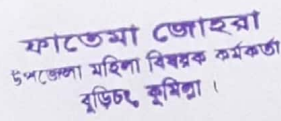 ফাতেমা জোহরা
উপজেলা মহিলা বিষয়ক কর্মকর্তা
বুড়িচং, কুমিল্লা ।